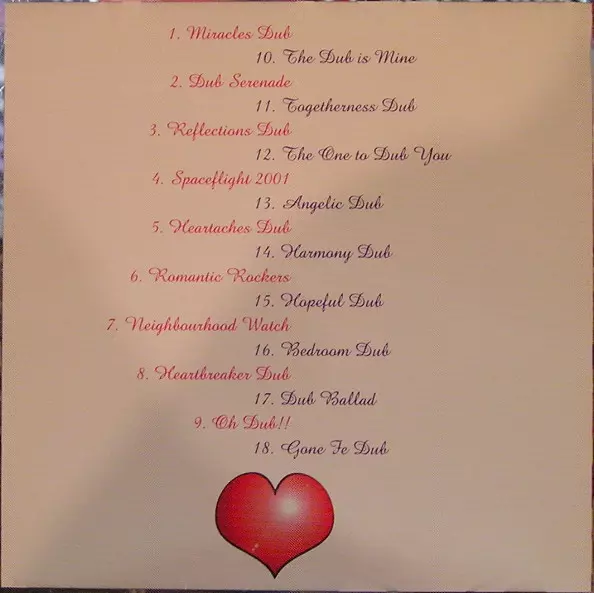 1. Miracles Dub
10. The Dub is Mine
2. Dub Serenade
11. Togetherness Dub
3. Reflections Dub
12. The One to Dub You
4. Spaceflight 2001
13. Angelic Dub
5. Heartaches Dub
14. Harmony Dub
6. Romantic Rockers
15. Hopeful Dub
7. Neighbourhood Watch
16. Bedroom Dub
8. Heartbreaker Dub
17. Dub Ballad
9. Oh Dub!!
18. Gone Fe Dub